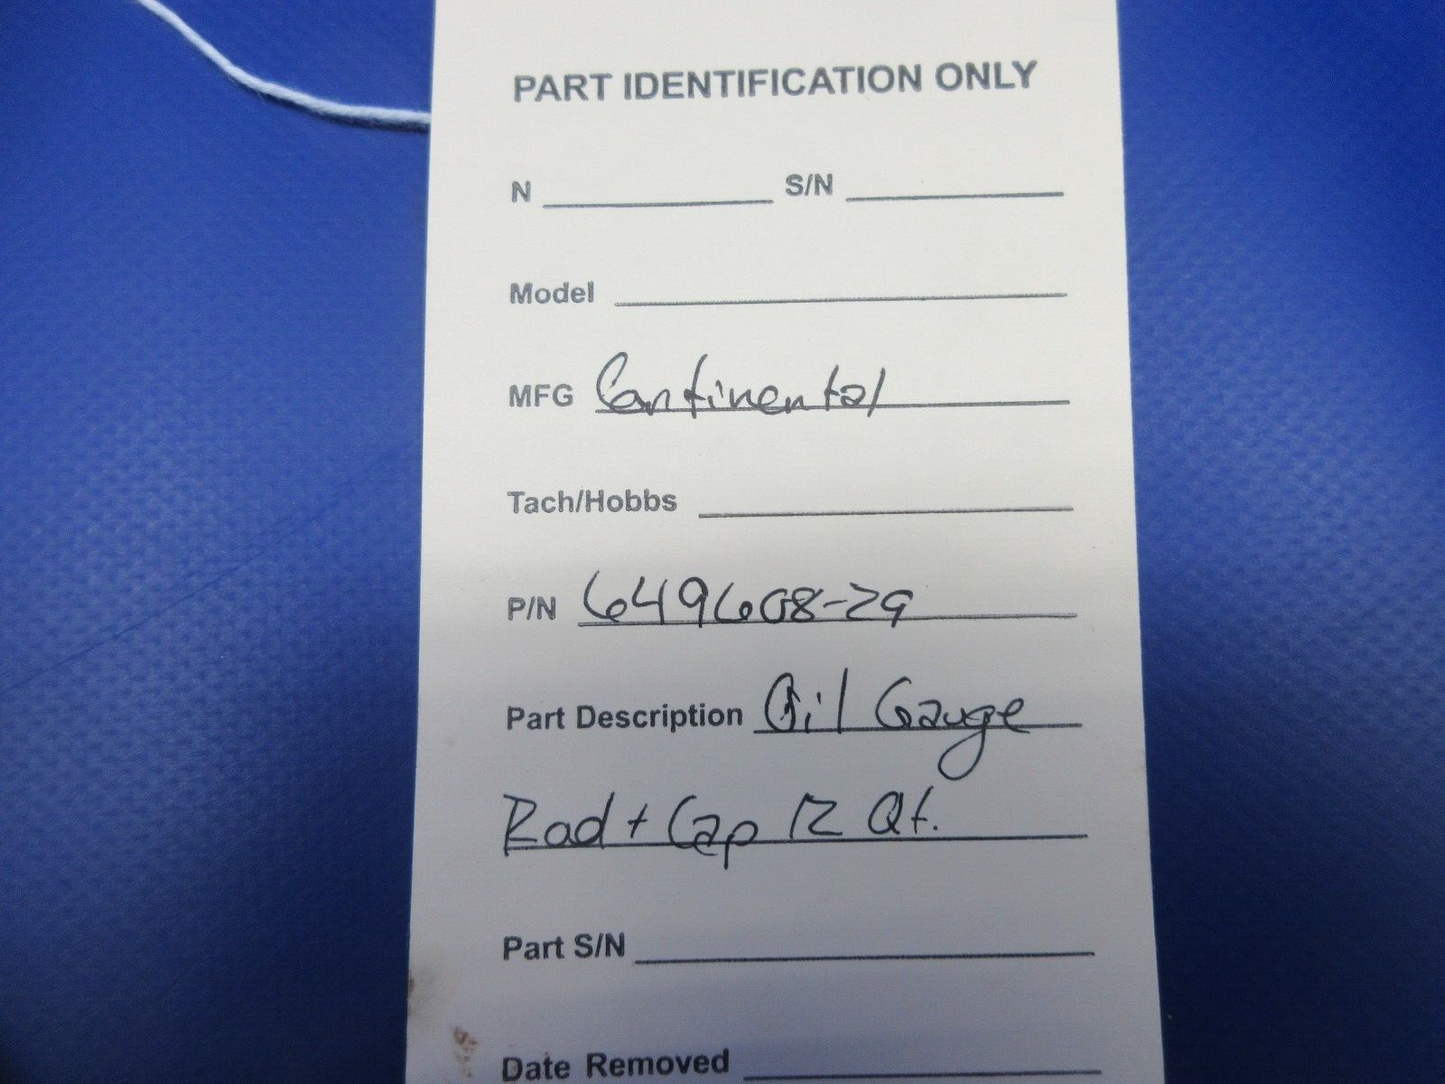 PART IDENTIFICATION ONLY
N S/N
Model
MFG Continental
Tach/Hobbs
P/N 649608-29
Part Description Oil Gauge
Rod + Cap 12 Qt.
Part S/N
Date Removed